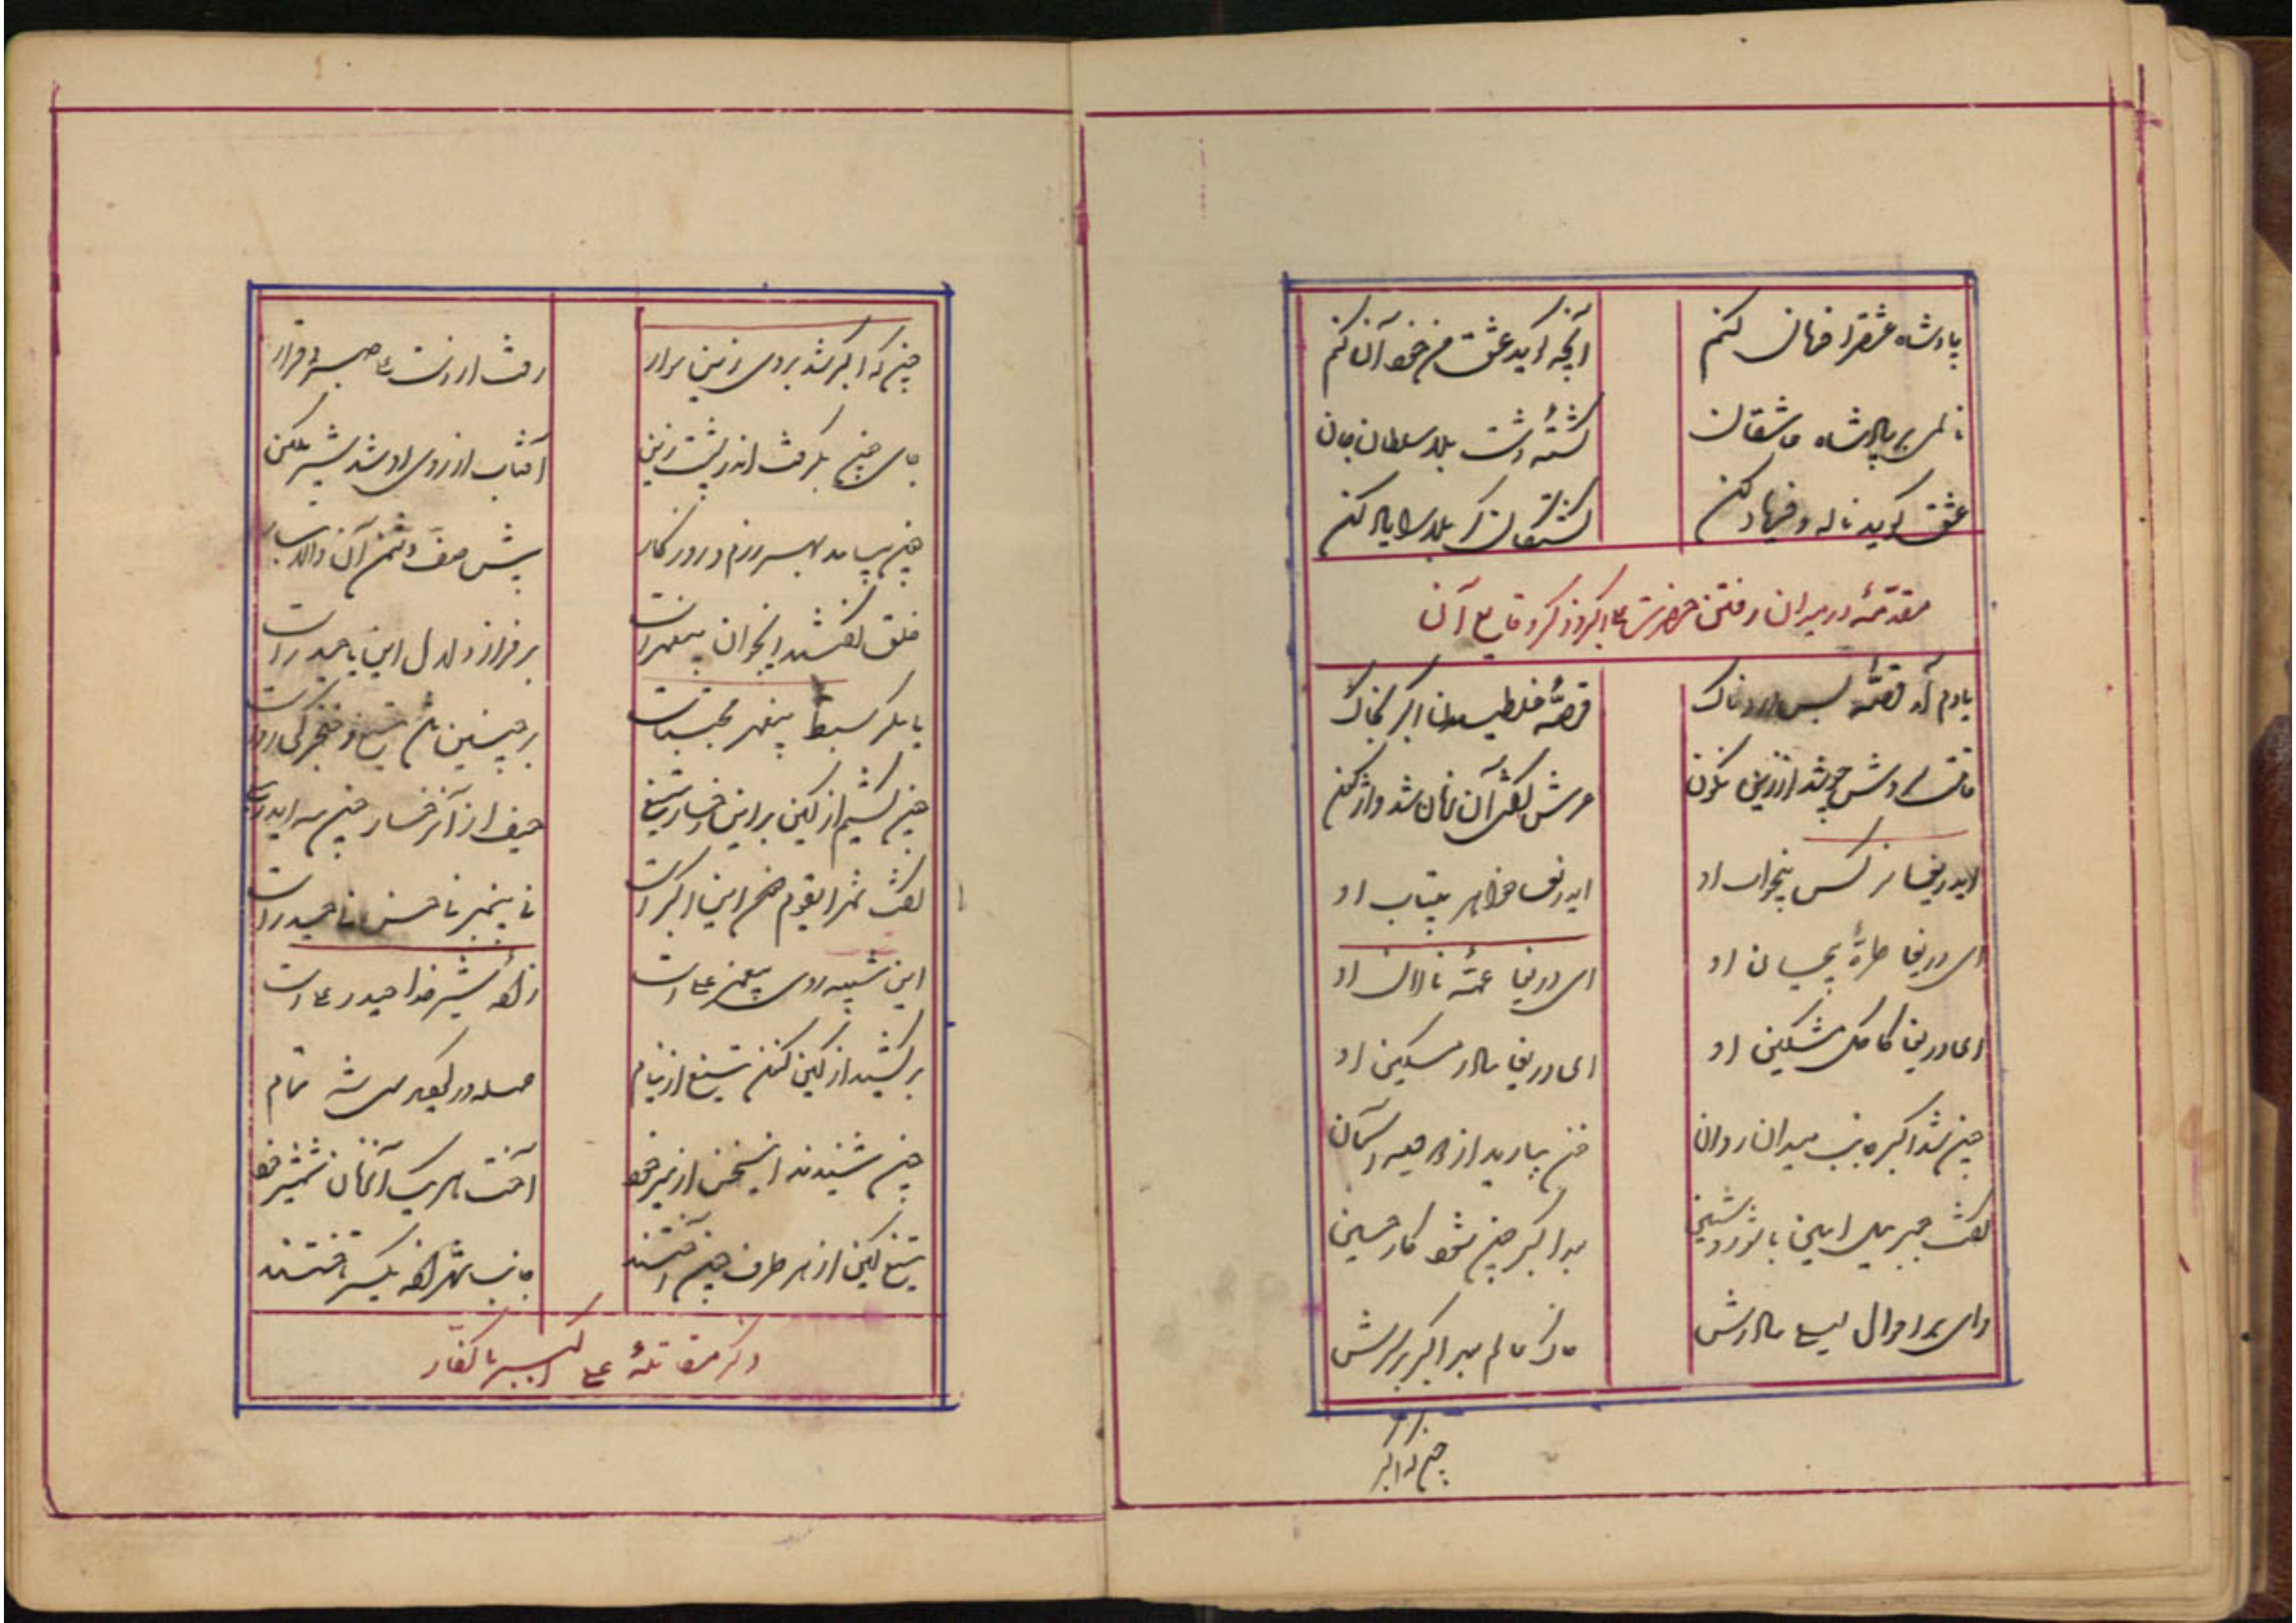 پادشاه عشق را فرمان کنم
آنچه گوید عشق من خود آن کنم
پادشاه عاشقان
کشته گشت سلطان جان
عشق گوید ناله و فریاد کن
کشتگان را یاد کن
مقدمهٔ در میدان رفتن حضرت علی اکبر و ذکر وقایع آن
یادم آمد قصهٔ بس دردناک
قصهٔ غلطیدن اکبر بخاک
قامت سروش چو شد از زین نگون
عرش گفتی آن زمان شد واژگون
ایدریغا نرگس بیخواب او
ایدریغا خواهر بیتاب او
ای دریغا طرهٔ پیچان او
ای دریغا عمهٔ نالان او
ای دریغا کاکل مشکین او
ای دریغا مادر مسکین او
چون شد اکبر جانب میدان روان
خون ببارید از آسمان
گفت جبریل امین با شور و شین
بعد اکبر چون شود کار حسین
وای بر احوال لیلی مادرش
خاک عالم بعد اکبر بر سرش
چونکه اکبر
چونکه اکبر شد بروی زین سوار
رفت از دست علی صبر و قرار
جای چون بگرفت اندر پشت زین
آفتاب از روی او شد شرمگین
چون بیامد بهر رزم و روز کار
پیش صف دشمن آن والاتبار
خلق گفتند اینجوان پیغمبر است
بر فراز دلدل این یا حیدر است
یا مگر سبط پیغمبر مجتباست
بر چنین تیغ و خنجر کی رواست
چون کشیم از کین بر این رخسار تیغ
حیف از آن رخسار چون مه ایدریغ
گفت شمر ایقوم دون این اکبر است
نا پیمبر نا حسن نا حیدر است
این شبیه روی پیغمبر علی است
زانکه شیر خدا حیدر علی است
برکشید از کین کنون تیغ از نیام
حمله در گیرید تمام
چون شنیدند این سخن از میر خود
آخت هر یک آنزمان شمشیر خود
تیغ کین از هر طرف چون آختند
جانب شهزاده یکسر تاختند
ذکر مقاتلهٔ علی اکبر با کفار